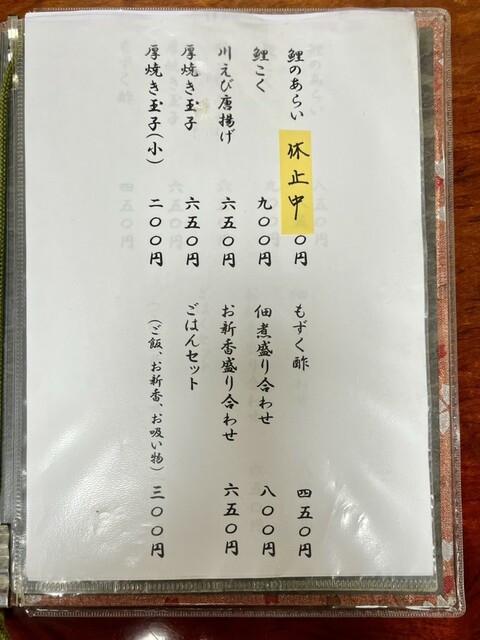 鯉のあらい 休止中 〇円
鯉こく 九〇〇円
川えび唐揚げ 六五〇円
厚焼き玉子 六五〇円
厚焼き玉子(小) 二〇〇円
もずく酢 四五〇円
佃煮盛り合わせ 八〇〇円
お新香盛り合わせ 六五〇円
ごはんセット
(ご飯、お新香、お吸い物) 三〇〇円